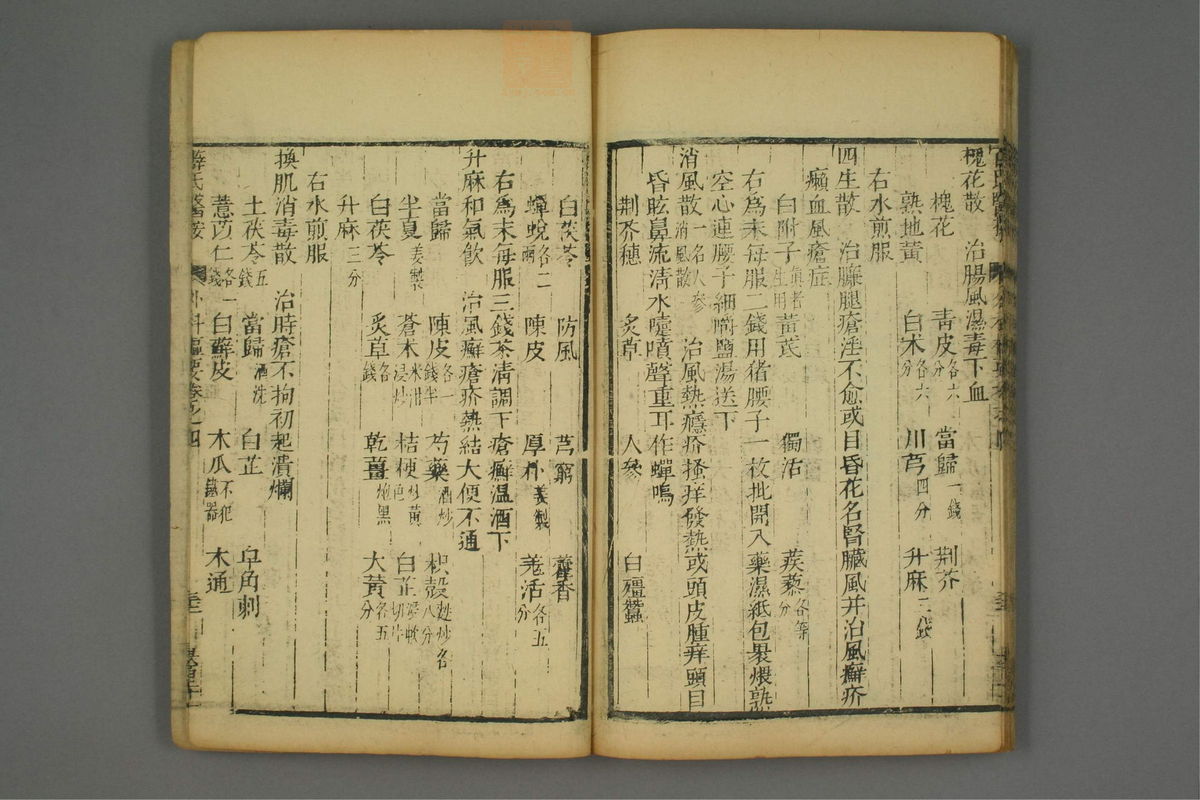 槐花散　治腸風濕毒下血
槐花　青皮各六分　當歸一錢　荊芥
熟地黃　白术各六分　川芎四分　升麻
右水煎服
四生散　治臁腿瘡淫不愈或目昏花名腎臟風并治風癬疥
癩血風瘡症
白附子生用　黃芪　獨活　蒺藜各等分
右爲末每服二錢用猪腰子一枚批開入藥濕紙包裹煨熟
空心連腰子細嚼鹽湯送下
消風散一名人參消風散　治風熱癮疹搔痒發熱或頭皮腫痒頭目
昏眩鼻流清水嚏噴聲重耳作蟬鳴
荆芥穗　炙草　人參　白殭蠶
白茯苓　防風　芎藭　藿香
蟬蛻各二兩　陳皮　厚朴姜製　羌活各五分
右爲末每服三錢茶清調下瘡癬温酒下
升麻和氣飲　治風癬瘡疥熱結大便不通
當歸　陳皮各一錢半　芍藥酒炒　枳殼麩炒各八分
半夏姜製　蒼术米泔浸炒　桔梗炒黃色　白芷
白茯苓　炙草各錢　乾薑炮黑　大黃各五分
升麻三分
右水煎服
換肌消毒散　治時瘡不拘初起潰爛
土茯苓五錢　當歸酒洗　白芷　皁角刺
薏苡仁各一錢　白蘚皮　木瓜不犯鐵器　木通
薛氏醫案　外科樞要卷之四